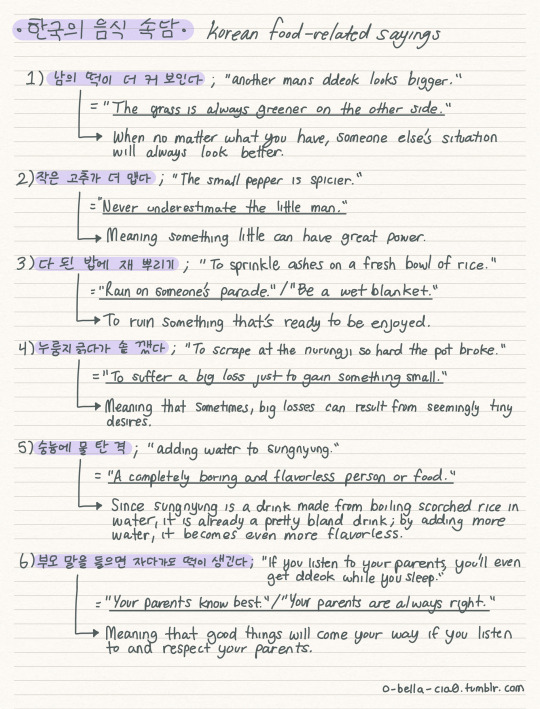 ·한국의 음식 속담· korean food-related sayings
1) 남의 떡이 더 커 보인다 ; "another mans ddeok looks bigger."
= "The grass is always greener on the other side."
When no matter what you have, someone else's situation
will always look better.
2) 작은 고추가 더 맵다 ; "The small pepper is spicier."
= "Never underestimate the little man."
Meaning something little can have great power.
3) 다 된 밥에 재 뿌리기 ; "To sprinkle ashes on a fresh bowl of rice."
= "Rain on someone's parade." / "Be a wet blanket."
To ruin something that's ready to be enjoyed.
4) 누룽지 긁다가 솥 깼다 ; "To scrape at the nurungji so hard the pot broke."
= "To suffer a big loss just to gain something small."
Meaning that sometimes, big losses can result from seemingly tiny
desires.
5) 숭늉에 물 탄 격 ; "adding water to sungnyung."
= "A completely boring and flavorless person or food."
Since sungnyung is a drink made from boiling scorched rice in
water, it is already a pretty bland drink; by adding more
water, it becomes even more flavorless.
6) 부모 말을 들으면 자다가도 떡이 생긴다 ; "If you listen to your parents, you'll even
get ddeok while you sleep."
= "Your parents know best." / "Your parents are always right."
Meaning that good things will come your way if you listen
to and respect your parents.
o-bella-ciao.tumblr.com